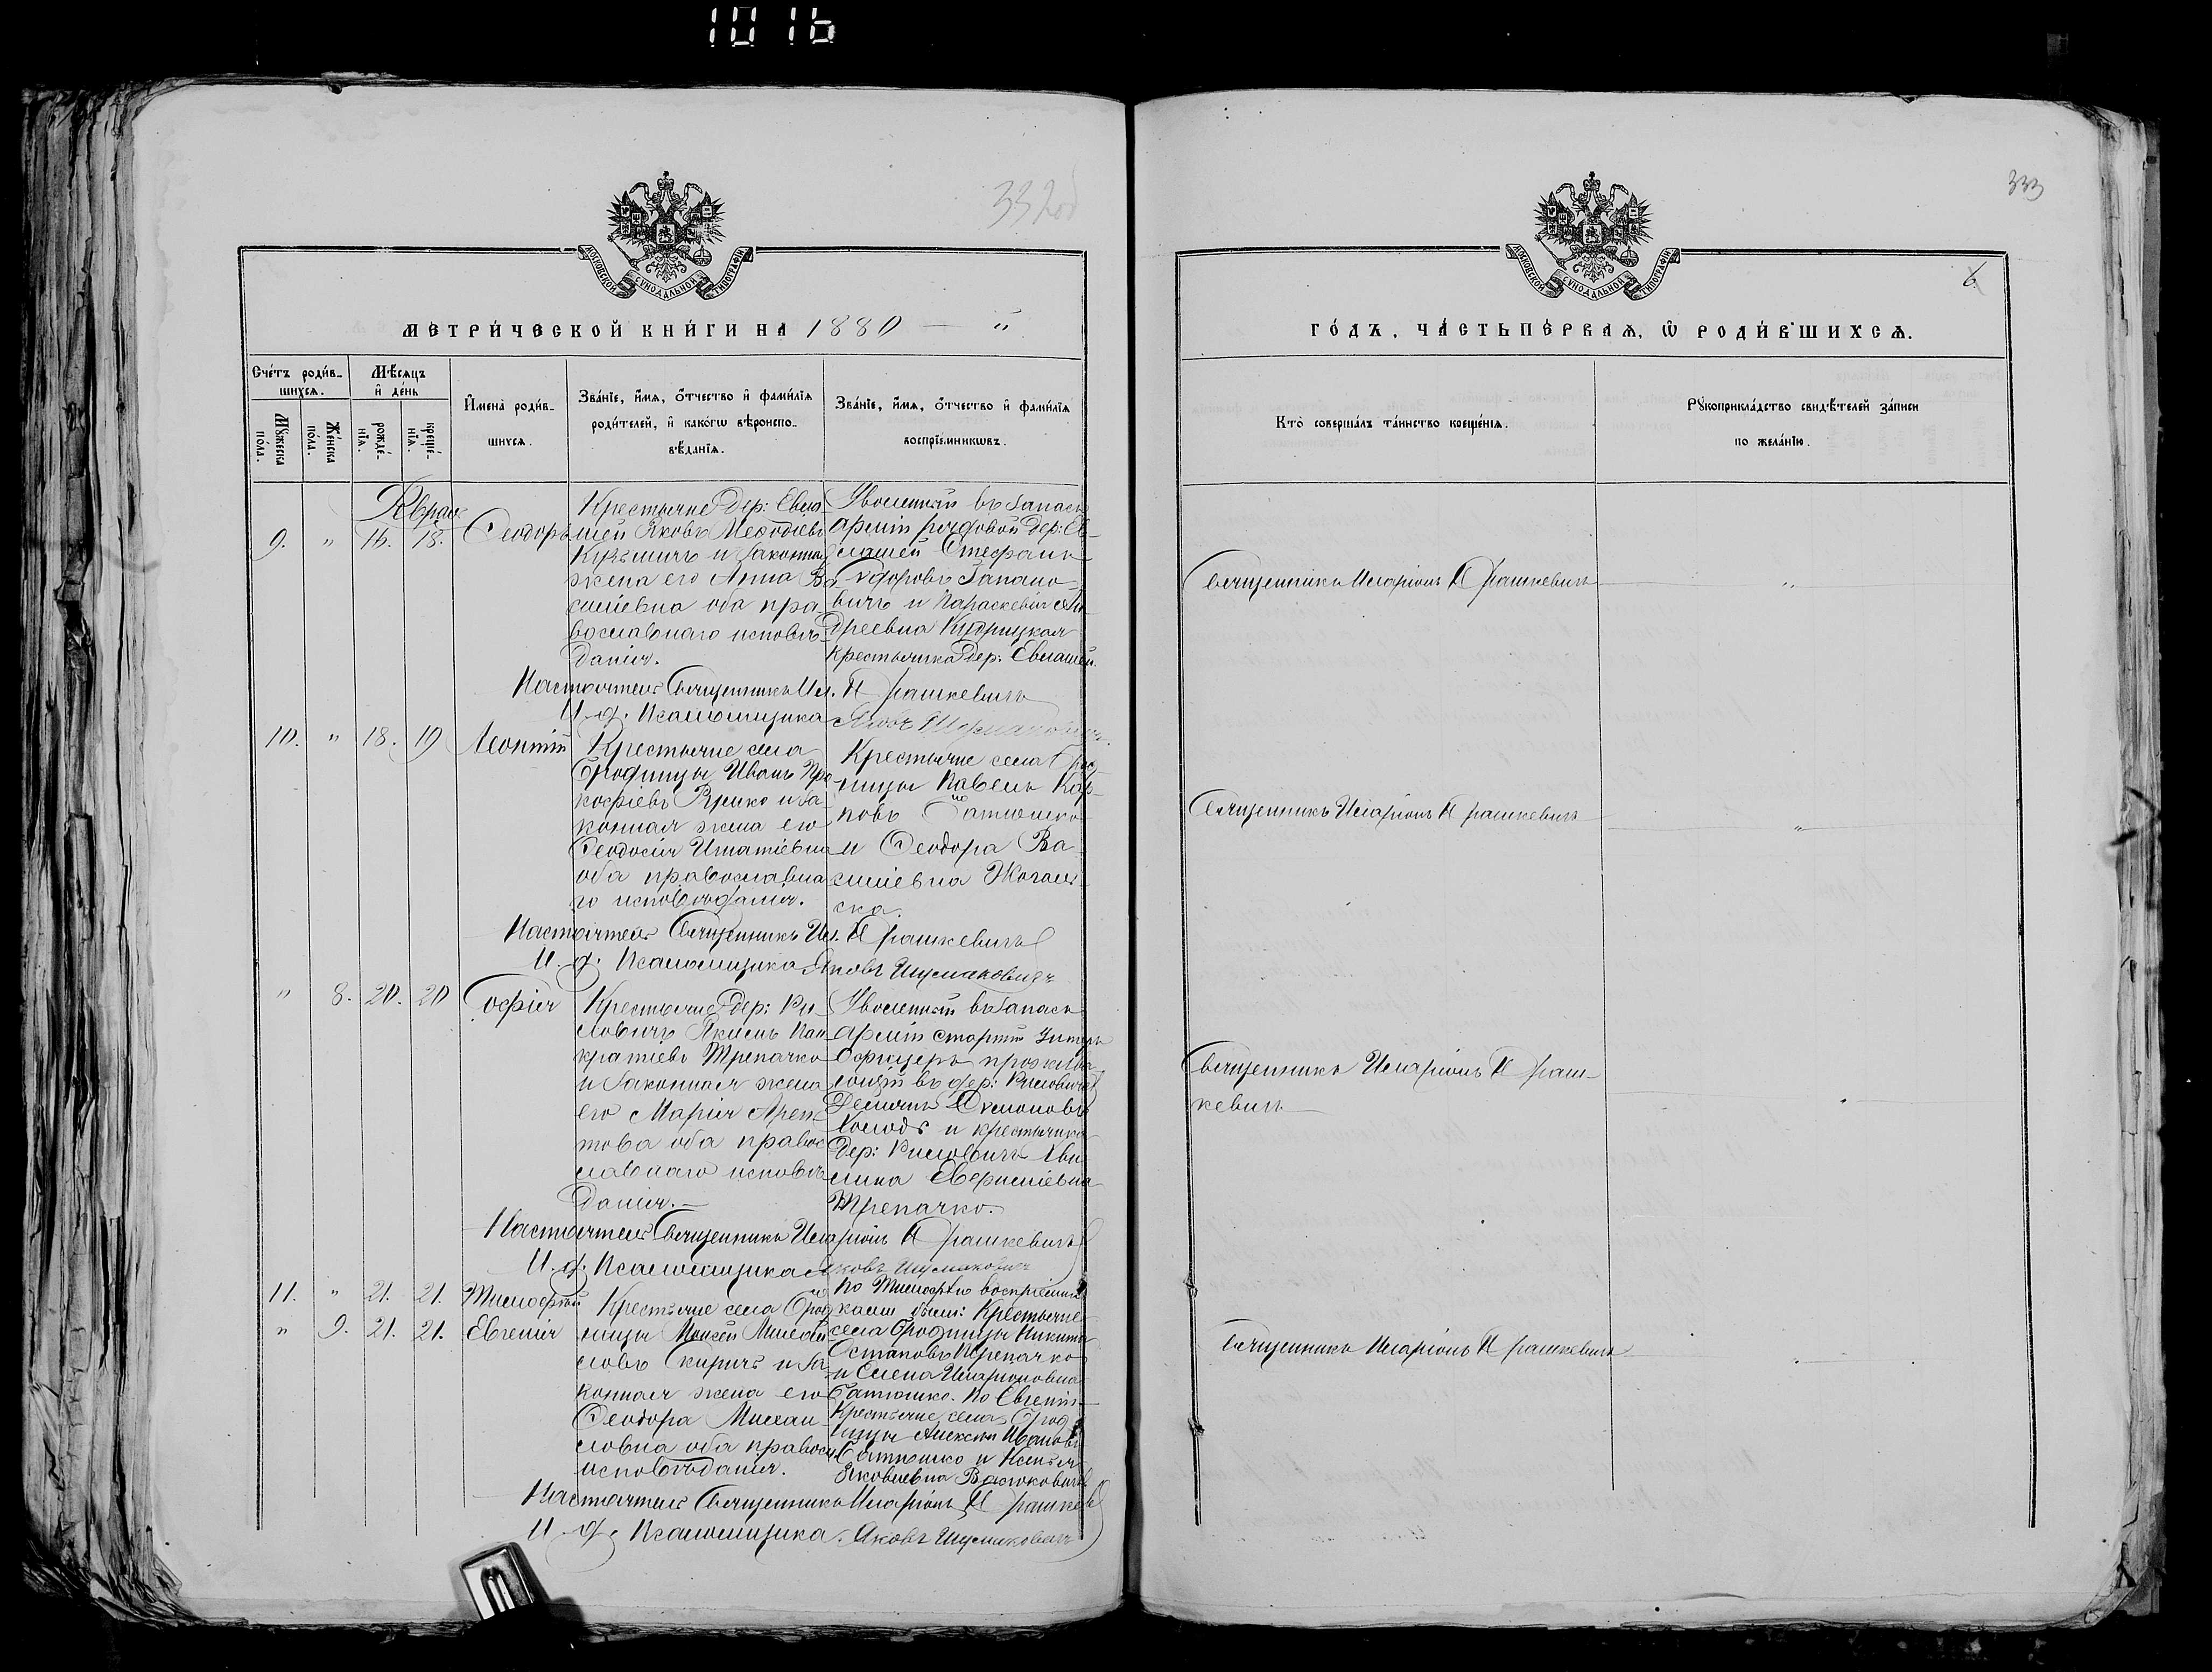 1016
332об
333
6
МОСКОВСКОЙ СѴНОДАЛЬНОЙ ТИПОГРАФІИ
МЕТРИ́ЧЕСКОЙ КНИ́ГИ НА 1880 — "
МОСКОВСКОЙ СѴНОДАЛЬНОЙ ТИПОГРАФІИ
ГО́ДЪ, ЧА́СТЬ ПЕ́РВАѦ, Ѡ҆ РОДИ́ВШИХСѦ.
Сче́тъ роди́в-
шихсѧ.
Мꙋ́жеска по́ла.
Же́нска по́ла.
Мѣ́сѧцъ
и҆ де́нь
рожде́-нїѧ.
креще́-нїѧ.
И҆мена̀ роди́в-
шихсѧ.
Зва́нїе, и҆́мѧ, ѻ҆́тчество и҆ фами́лїѧ
роди́телей, и҆ како́гѡ вѣроиспо-
вѣ́данїѧ.
Зва́нїе, и҆́мѧ, ѻ҆́тчество и҆ фами́лїѧ
воспрїе́мникѡвъ.
Кто̀ соверша́лъ та́инство креще́нїѧ.
Рꙋкоприкла́дство свидѣ́телей за́писи
по жела́нїю.
9. " 16. 18. Ѳеодоръ
Крестьяне дер: Евла-
шей Яковъ Меѳодіевъ
Кузьмичъ и законная
жена его Анна Ва-
силіевна оба пра-
вославнаго исповѣ-
данія.
Уволенный въ запасъ
арміи рядовой дер: Ев-
лашей Стефанъ
вичъ и Параскевія Ан-
дреевна Кудрицкая
крестьянка дер: Евлашей.
Священникъ Иларіонъ Прашкевичъ "
Настоятель Священникъ Ил. Прашкевичъ
И. д. Псаломщика Яковъ Шумаковичъ.
10. " 18. 19 Леонтій
Крестьяне села
Бродницы Иванъ Про-
кофіевъ и за-
конная жена его
Ѳеодосія Игнатіевна
оба православна-
го исповѣданія.
Крестьяне села Брод-
ницы Павелъ Кар-
повъ Батюшко
и Ѳеодора Ва-
силіевна
ска.
Священникъ Иларіонъ Прашкевичъ "
Настоятель Священникъ Ил. Прашкевичъ
И. д. Псаломщика Яковъ Шумаковичъ
" 8. 20. 20 Софія
Крестьяне дер: Ри-
ловичъ Якимъ Пан-
кратіевъ Трепачко
и законная жена
его Марія Ареп-
това оба право-
славнаго исповѣ-
данія.—
Уволенный въ запасъ
арміи старшій Унтеръ
Офицеръ прожива-
ющій въ дер:
и крестьянка
дер:
Трепачко.
Священникъ Иларіонъ Праш-
кевичъ
Настоятель Священникъ Иларіонъ Прашкевичъ
И. д. Псаломщика Яковъ Шумаковичъ
11. " 21. 21. Тимоѳей
" 9. 21. 21. Евгенія
Крестьяне села Брод-
ницы Моисей Михаи-
ловъ и за-
конная жена его
Ѳеодора Михаи-
ловна оба правосл.
исповѣданія.
По Тимоѳею воспріемни-
ками были: Крестьяне
села Бродницы Никита
Остаповъ Трепачко
и Елена Иларіоновна
Батюшко. По Евгеніи
Крестьяне села Брод-
ницы Алексѣй Ивановъ
Батюшко и Ксенія
Яковлевна Васюковичъ
Священникъ Иларіонъ Прашкевичъ
Настоятель Священникъ Иларіонъ Прашкев
И. д. Псаломщика. Яковъ Шумаковичъ